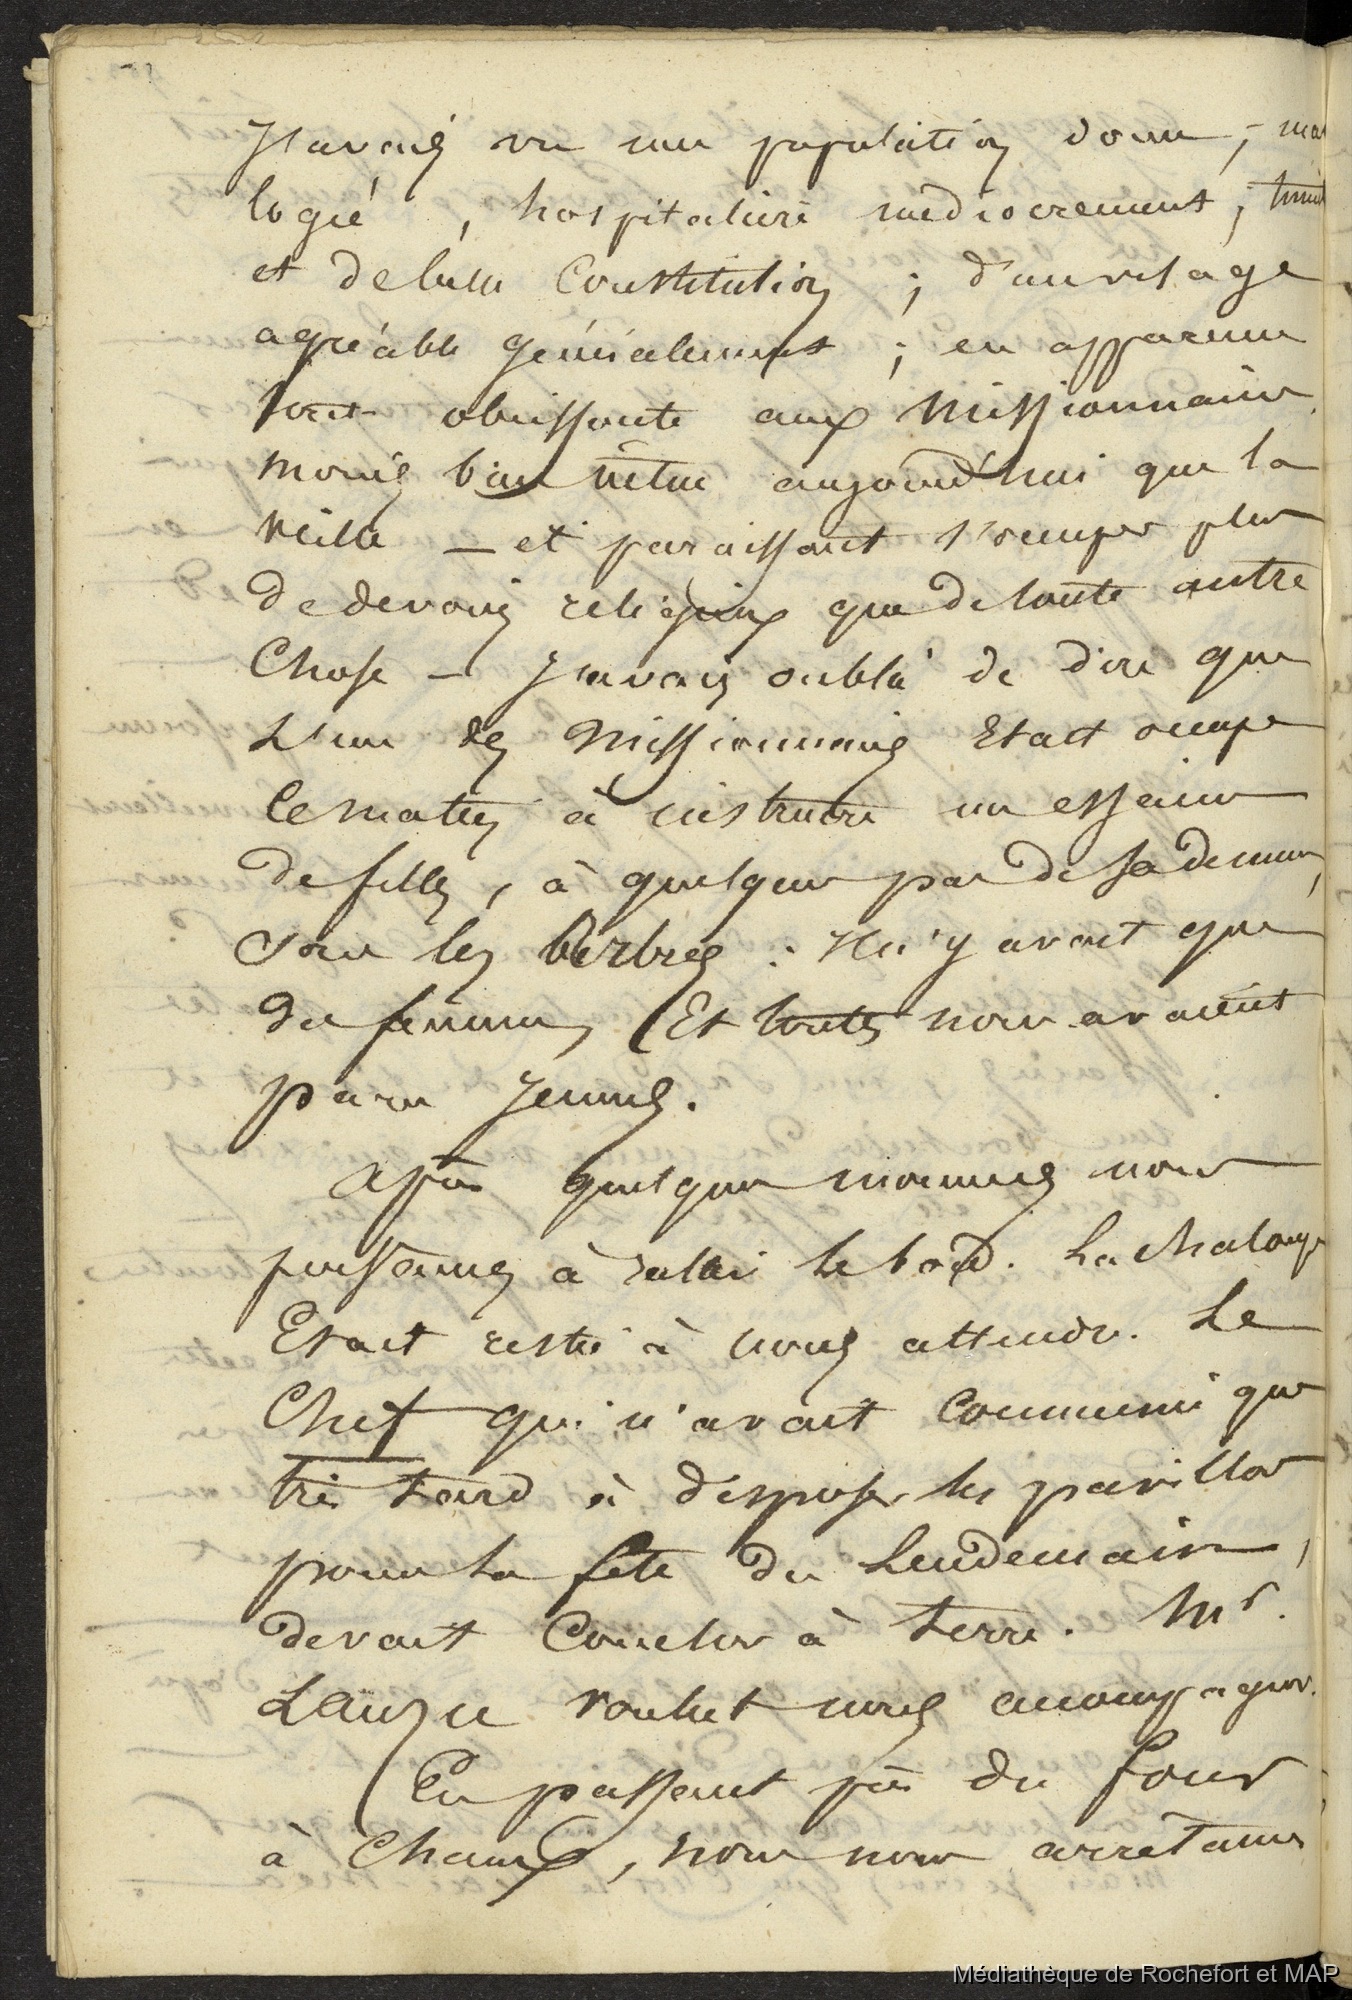 J'avais vu une population douce, mal
logée, hospitalière médiocrement, timide
et de belle Constitution ; d'un visage
agréable généralement ; en apparence
tout obéissante aux Missionnaires
moins bien vétue aujourd'hui que la
veille — et paraissant s'occuper plus
de devoirs religieux que de toute autre
Chose — J'avais oublié de dire que
L'un des Missionnaires Etait occupé
le matin à instruire un essaim
de filles, à quelques pas de sa demeure,
sous les arbres : Il n'y avait que
des femmes, Et toutes nous avaient
paru jeunes.
après quelques moments nous
pensâmes à rallier le bord. La chaloupe
Etait restée à nous attendre. Le
Chef qui n'avait Commencé que
très tard à disposer les pavillons
pour la fete du Lendemain,
devait Coucher à terre. Mr.
Lauzu voulut nous accompagner.
En passant près du four
à Chaux, nous nous arrêtames
Médiathèque de Rochefort et MAP